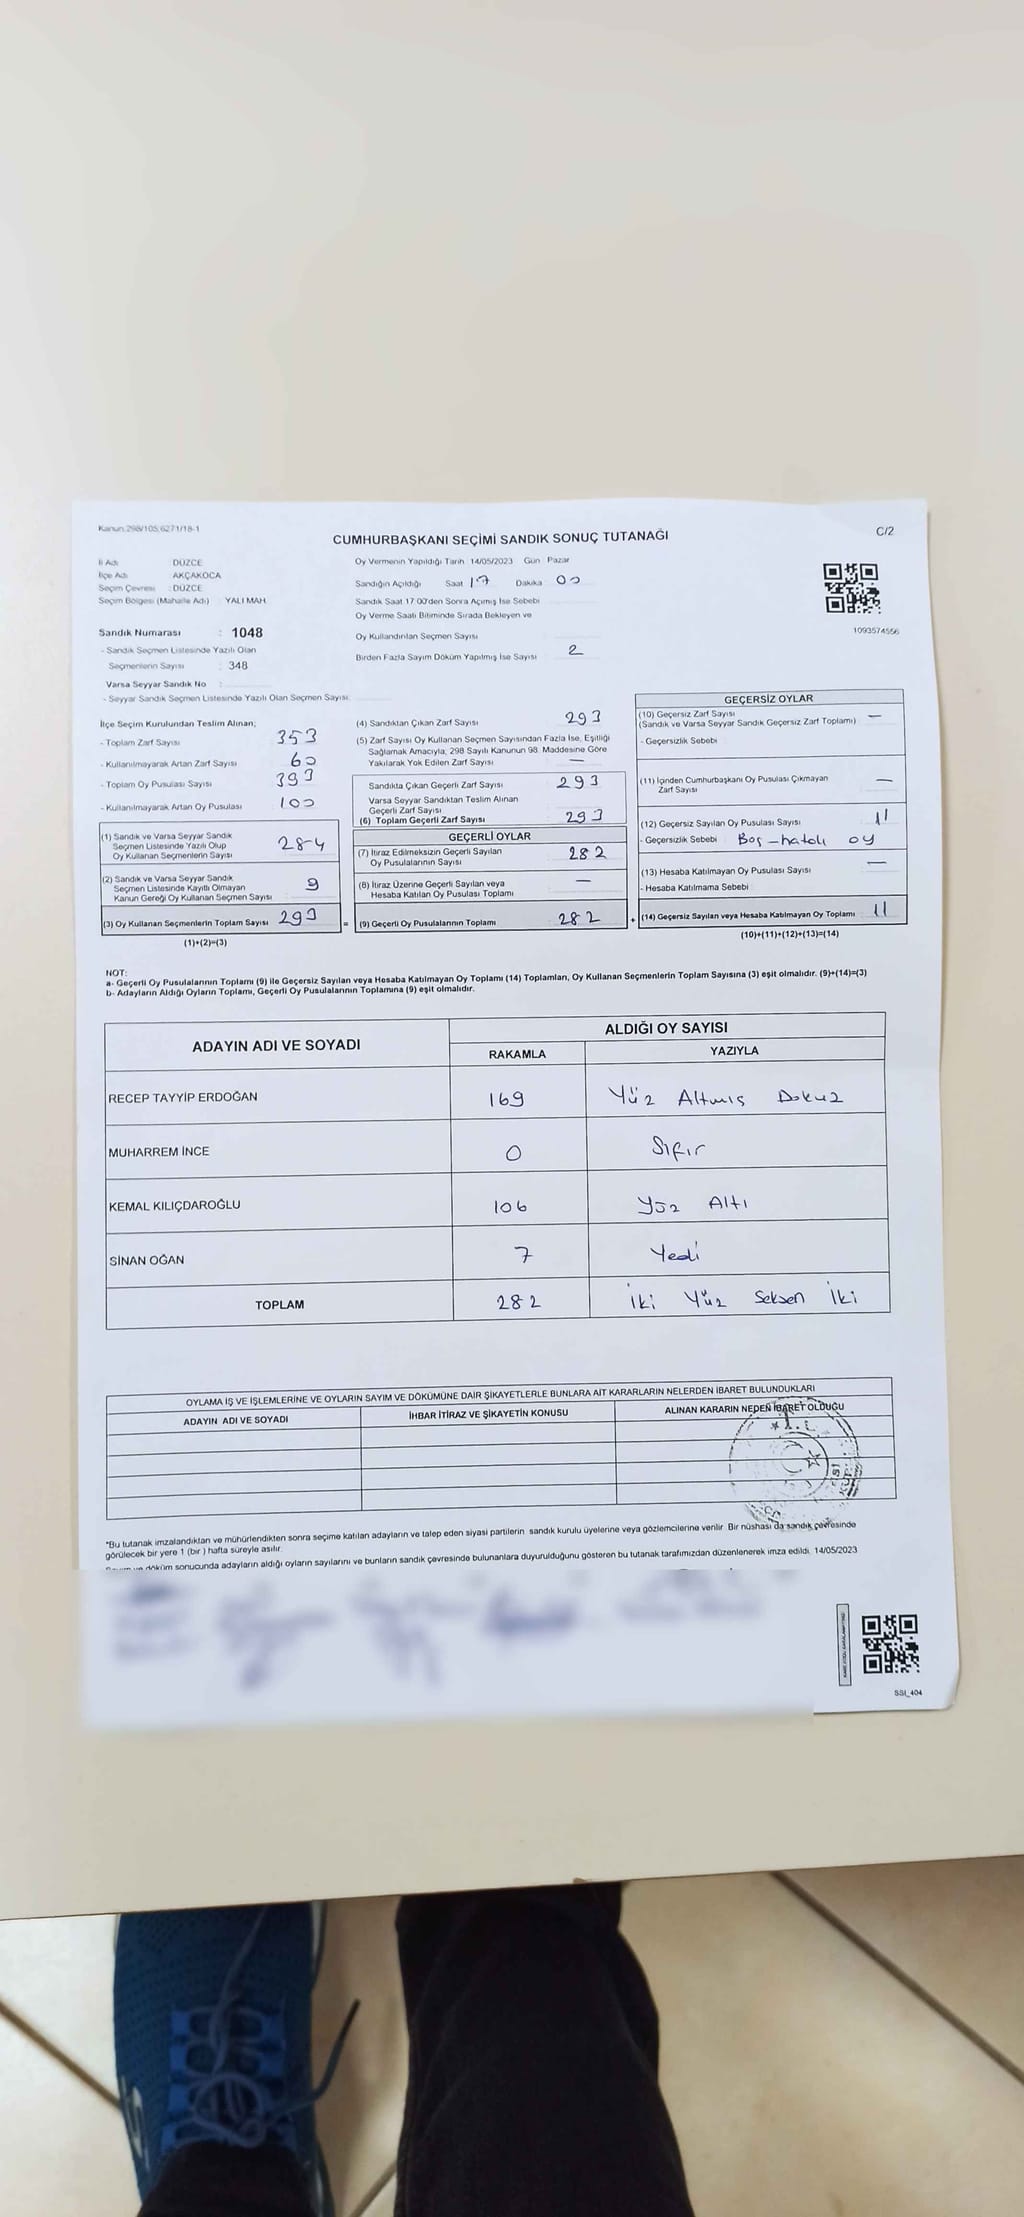 Kanun:298/105;6271/18-1
C/2
CUMHURBAŞKANI SEÇİMİ SANDIK SONUÇ TUTANAĞI
İl Adı : DÜZCE
İlçe Adı : AKÇAKOCA
Seçim Çevresi : DÜZCE
Seçim Bölgesi (Mahalle Adı) : YALI MAH.
Sandık Numarası : 1048
- Sandık Seçmen Listesinde Yazılı Olan
Seçmenlerin Sayısı : 348
Varsa Seyyar Sandık No :
- Seyyar Sandık Seçmen Listesinde Yazılı Olan Seçmen Sayısı:
Oy Vermenin Yapıldığı Tarih 14/05/2023 Gün Pazar
Sandığın Açıldığı Saat 17 Dakika 00
Sandık Saat 17:00'den Sonra Açımış İse Sebebi
Oy Verme Saati Bitiminde Sırada Bekleyen ve
Oy Kullandırılan Seçmen Sayısı
Birden Fazla Sayım Döküm Yapılmış İse Sayısı 2
1093574556
İlçe Seçim Kurulundan Teslim Alınan;
- Toplam Zarf Sayısı 353
- Kullanılmayarak Artan Zarf Sayısı 60
- Toplam Oy Pusulası Sayısı 393
- Kullanılmayarak Artan Oy Pusulası 100
(1) Sandık ve Varsa Seyyar Sandık
Seçmen Listesinde Yazılı Olup
Oy Kullanan Seçmenlerin Sayısı 284
(2) Sandık ve Varsa Seyyar Sandık
Seçmen Listesinde Kayıtlı Olmayan
Kanun Gereği Oy Kullanan Seçmen Sayısı 9
(3) Oy Kullanan Seçmenlerin Toplam Sayısı 293 =
(1)+(2)=(3)
(4) Sandıktan Çıkan Zarf Sayısı 293
(5) Zarf Sayısı Oy Kullanan Seçmen Sayısından Fazla İse, Eşitliği
Sağlamak Amacıyla, 298 Sayılı Kanunun 98. Maddesine Göre
Yakılarak Yok Edilen Zarf Sayısı —
Sandıkta Çıkan Geçerli Zarf Sayısı 293
Varsa Seyyar Sandıktan Teslim Alınan
Geçerli Zarf Sayısı
(6) Toplam Geçerli Zarf Sayısı 293
GEÇERLİ OYLAR
(7) İtiraz Edilmeksizin Geçerli Sayılan
Oy Pusulalarının Sayısı 282
(8) İtiraz Üzerine Geçerli Sayılan veya
Hesaba Katılan Oy Pusulası Toplamı —
(9) Geçerli Oy Pusulalarının Toplamı 282 +
GEÇERSİZ OYLAR
(10) Geçersiz Zarf Sayısı —
(Sandık ve Varsa Seyyar Sandık Geçersiz Zarf Toplamı)
- Geçersizlik Sebebi
(11) İçinden Cumhurbaşkanı Oy Pusulası Çıkmayan
Zarf Sayısı —
(12) Geçersiz Sayılan Oy Pusulası Sayısı 11
- Geçersizlik Sebebi Boş-hatalı oy
(13) Hesaba Katılmayan Oy Pusulası Sayısı —
- Hesaba Katılmama Sebebi
(14) Geçersiz Sayılan veya Hesaba Katılmayan Oy Toplamı 11
(10)+(11)+(12)+(13)=(14)
NOT:
a- Geçerli Oy Pusulalarının Toplamı (9) ile Geçersiz Sayılan veya Hesaba Katılmayan Oy Toplamı (14) Toplamları, Oy Kullanan Seçmenlerin Toplam Sayısına (3) eşit olmalıdır. (9)+(14)=(3)
b- Adayların Aldığı Oyların Toplamı, Geçerli Oy Pusulalarının Toplamına (9) eşit olmalıdır.
ADAYIN ADI VE SOYADI
ALDIĞI OY SAYISI
RAKAMLA YAZIYLA
RECEP TAYYİP ERDOĞAN 169 Yüz Altmış Dokuz
MUHARREM İNCE 0 Sıfır
KEMAL KILIÇDAROĞLU 106 Yüz Altı
SİNAN OĞAN 7 Yedi
TOPLAM 282 İki Yüz Seksen İki
OYLAMA İŞ VE İŞLEMLERİNE VE OYLARIN SAYIM VE DÖKÜMÜNE DAİR ŞİKAYETLERLE BUNLARA AİT KARARLARIN NELERDEN İBARET BULUNDUKLARI
ADAYIN ADI VE SOYADI İHBAR İTİRAZ VE ŞİKAYETİN KONUSU ALINAN KARARIN NEDEN İBARET OLDUĞU
*Bu tutanak imzalandıktan ve mühürlendikten sonra seçime katılan adayların ve talep eden siyasi partilerin sandık kurulu üyelerine veya gözlemcilerine verilir. Bir nüshası da sandık çevresinde
görülecek bir yere 1 (bir) hafta süreyle asılır.
döküm sonucunda adayların aldığı oyların sayılarını ve bunların sandık çevresinde bulunanlara duyurulduğunu gösteren bu tutanak tarafımızdan düzenlenerek imza edildi. 14/05/2023
SSI_404